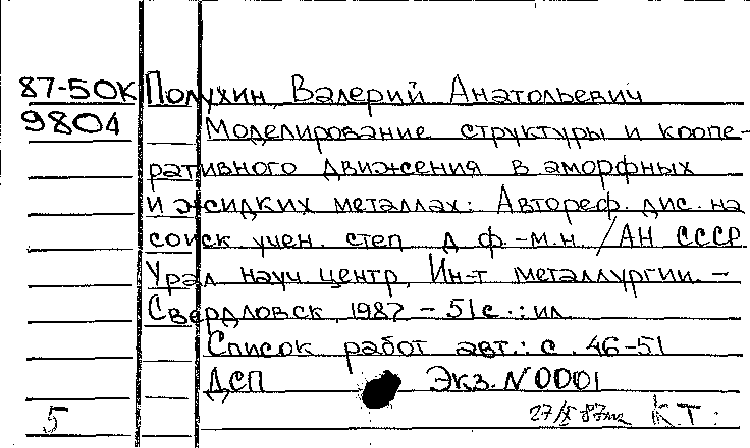 87-50К Полухин, Валерий Анатольевич
9804 Моделирование структуры и коопе-
ративного движения в аморфных
и жидких металлах: Автореф. дис. на
соиск. учен. степ. д. ф.-м.н. / АН СССР
Урал науч. центр, Ин-т металлургии. -
Свердловск, 1987 - 51 с.: ил.
Список работ авт.: с. 46-51
ДСП Экз. N 0001
5 КТ: